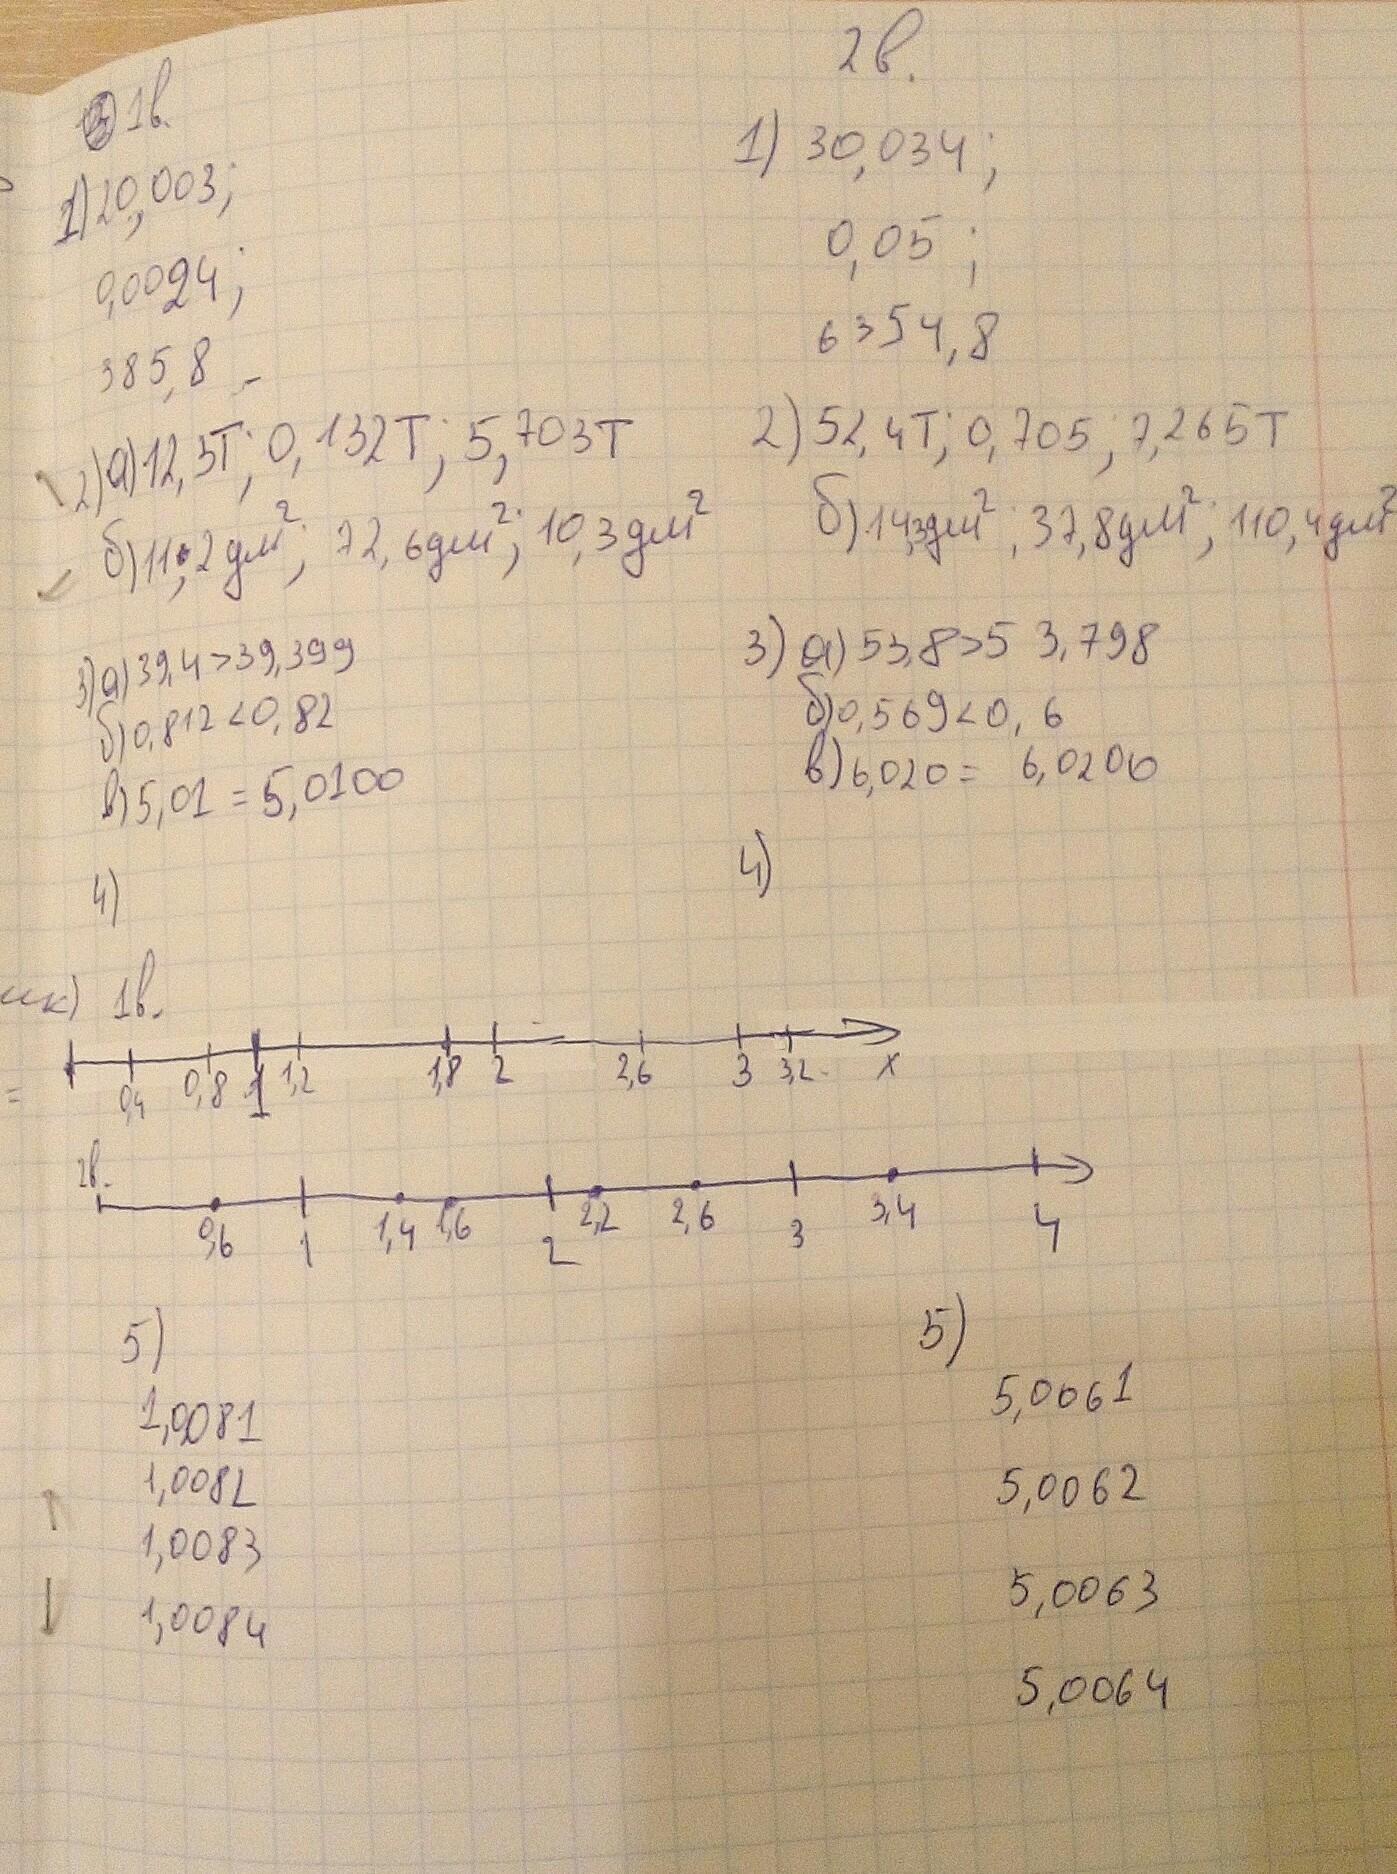 1в.
1) 20,003;
0,0024;
385,8
2) а) 12,3Т; 0,132Т; 5,703Т
б) 11,2дм²; 72,6дм²; 10,3дм²
3) а) 39,4>39,399
б) 0,812<0,82
в) 5,01=5,0100
4)
2в.
1) 30,034;
0,05;
6354,8
2) 52,4Т; 0,705; 7,265Т
б) 14,3дм²; 37,8дм²; 110,4дм²
3) а) 53,8>53,798
б) 0,569<0,6
в) 6,020= 6,0200
4)
1в.
0,4 0,8 1 1,2 1,8 2 2,6 3 3,2 х
2в.
0,6 1 1,4 1,6 2 2,2 2,6 3 3,4 4
5)
1,0081
1,0082
1,0083
1,0084
5)
5,0061
5,0062
5,0063
5,0064